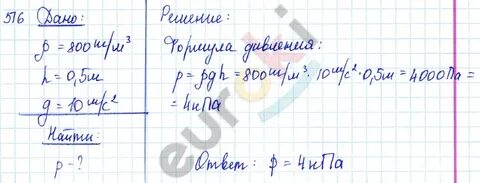 516 Дано:
ρ = 800 кг/м³
h = 0,5м
g = 10 м/с²
Найти:
p - ?
Решение:
Формула давления:
p = ρgh = 800 кг/м³ · 10 м/с² · 0,5м = 4000Па =
= 4кПа
Ответ: p = 4кПа
euroki